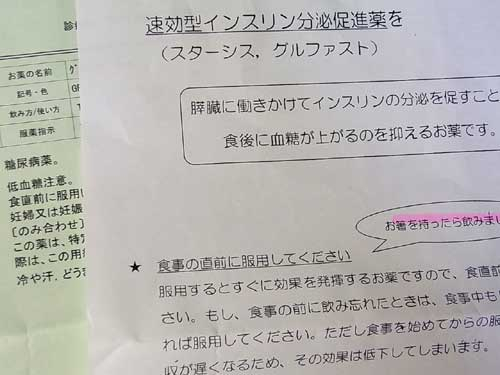 診
お薬の名前
記号・色
飲み方/使い方
服薬指示
糖尿病薬。
低血糖注意。
食直前に服用
妊婦又は妊娠
[のみ合わせ]
この薬は、特定
際は、この用
冷や汗、どう
速効型インスリン分泌促進薬を
(スターシス, グルファスト)
膵臓に働きかけてインスリンの分泌を促すこと
食後に血糖が上がるのを抑えるお薬です。
お箸を持ったら飲みまし
★ 食事の直前に服用してください
服用するとすぐに効果を発揮するお薬ですので、食直前
さい。もし、食事の前に飲み忘れたときは、食事中も
れば服用してください。ただし食事を始めてからの服
収が遅くなるため、その効果は低下してしまいます。